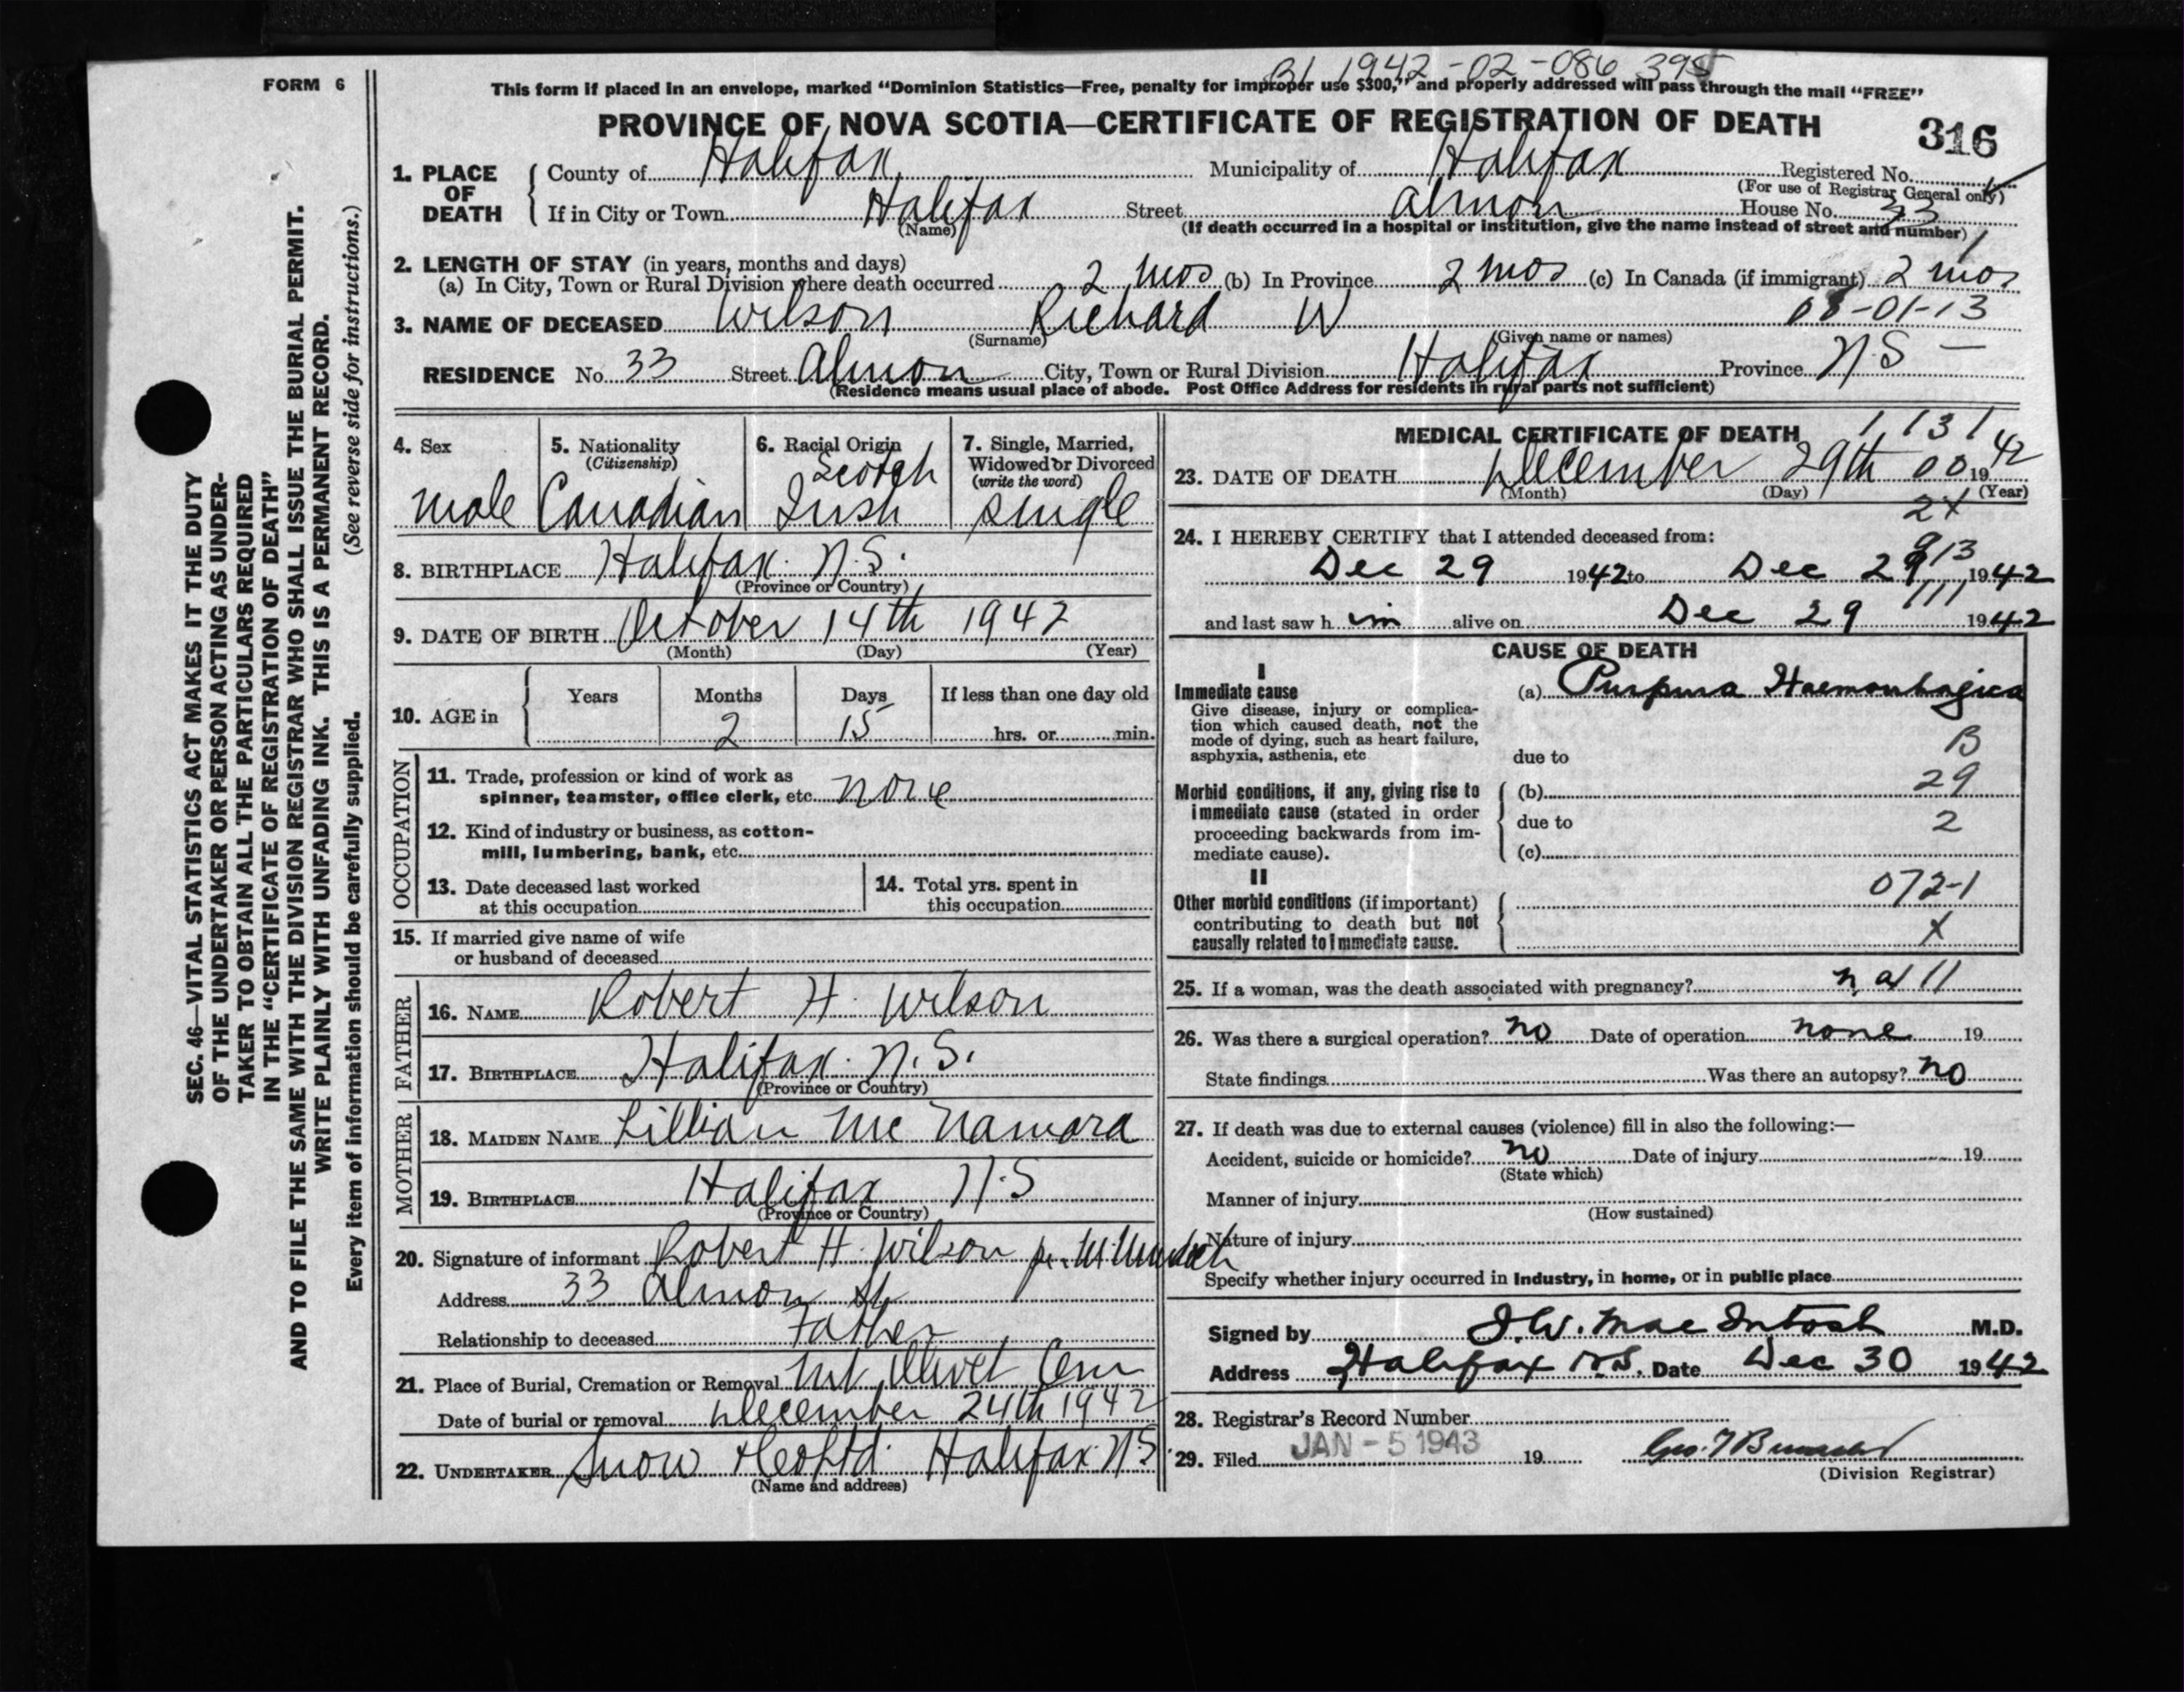 BI 1942-02-086 395
FORM 6
This form if placed in an envelope, marked “Dominion Statistics—Free, penalty for improper use $300,” and properly addressed will pass through the mail “FREE”
PROVINCE OF NOVA SCOTIA—CERTIFICATE OF REGISTRATION OF DEATH 316
1. PLACE OF DEATH County of Halifax Municipality of Halifax Registered No.
(For use of Registrar General only)
If in City or Town Halifax Street Almon House No. 33
(Name) (If death occurred in a hospital or institution, give the name instead of street and number)
2. LENGTH OF STAY (in years, months and days)
(a) In City, Town or Rural Division where death occurred 2 mos (b) In Province 2 mos (c) In Canada (if immigrant) 2 mos
3. NAME OF DECEASED Wilson Richard W 08-01-13
(Surname) (Given name or names)
RESIDENCE No. 33 Street Almon City, Town or Rural Division Halifax Province N.S —
(Residence means usual place of abode. Post Office Address for residents in rural parts not sufficient)
4. Sex
male
5. Nationality
(Citizenship)
Canadian
6. Racial Origin
Scotch
Irish
7. Single, Married,
Widowed or Divorced
(write the word)
single
8. BIRTHPLACE Halifax. N.S.
(Province or Country)
9. DATE OF BIRTH October 14th 1942
(Month) (Day) (Year)
10. AGE in Years Months Days If less than one day old
2 15 hrs. or min.
OCCUPATION
11. Trade, profession or kind of work as
spinner, teamster, office clerk, etc. none
12. Kind of industry or business, as cotton-
mill, lumbering, bank, etc.
13. Date deceased last worked
at this occupation
14. Total yrs. spent in
this occupation
15. If married give name of wife
or husband of deceased
FATHER
16. NAME Robert H. Wilson
17. BIRTHPLACE Halifax. N.S.
(Province or Country)
MOTHER
18. MAIDEN NAME Lillian Mc Namara
19. BIRTHPLACE Halifax N.S
(Province or Country)
20. Signature of informant Robert H. Wilson per
Address 33 Almon St
Relationship to deceased Father
21. Place of Burial, Cremation or Removal Mt Olivet Cem
Date of burial or removal December 24th 1942
22. UNDERTAKER Snow & Co Ltd. Halifax N.S
(Name and address)
MEDICAL CERTIFICATE OF DEATH 1 131
23. DATE OF DEATH December 29th 00 1942
(Month) (Day) (Year)
2X
24. I HEREBY CERTIFY that I attended deceased from:
913
Dec 29 1942 to Dec 29 1942
111
and last saw him alive on Dec 29 1942
CAUSE OF DEATH
I
Immediate cause (a) Purpura Haemorrhagica
Give disease, injury or complica-
tion which caused death, not the
mode of dying, such as heart failure,
asphyxia, asthenia, etc
B
due to
Morbid conditions, if any, giving rise to
immediate cause (stated in order
proceeding backwards from im-
mediate cause).
(b) 29
due to 2
(c)
II
Other morbid conditions (if important)
contributing to death but not
causally related to immediate cause.
072-1
X
25. If a woman, was the death associated with pregnancy?
26. Was there a surgical operation? no Date of operation none 19
State findings Was there an autopsy? no
27. If death was due to external causes (violence) fill in also the following:—
Accident, suicide or homicide? no Date of injury 19
(State which)
Manner of injury
(How sustained)
Nature of injury
Specify whether injury occurred in Industry, in home, or in public place
Signed by J.W. MacIntosh M.D.
Address Halifax N.S. Date Dec 30 1942
28. Registrar's Record Number
29. Filed JAN - 5 1943 19
(Division Registrar)
SEC. 46—VITAL STATISTICS ACT MAKES IT THE DUTY
OF THE UNDERTAKER OR PERSON ACTING AS UNDER-
TAKER TO OBTAIN ALL THE PARTICULARS REQUIRED
IN THE “CERTIFICATE OF REGISTRATION OF DEATH”
AND TO FILE THE SAME WITH THE DIVISION REGISTRAR WHO SHALL ISSUE THE BURIAL PERMIT.
WRITE PLAINLY WITH UNFADING INK. THIS IS A PERMANENT RECORD.
Every item of information should be carefully supplied. (See reverse side for instructions.)